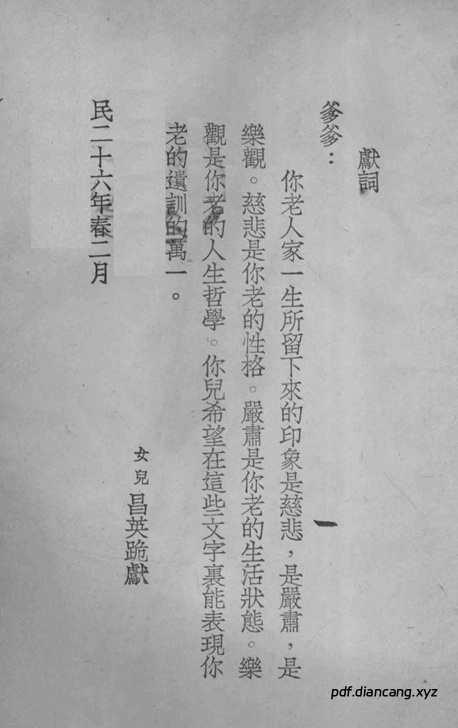 獻詞
爹爹：
你老人家一生所留下來的印象是慈悲，是嚴肅，是
樂觀。慈悲是你老的性格。嚴肅是你老的生活狀態。樂
觀是你老的人生哲學。你兒希望在這些文字裏能表現你
老的遺訓的萬一。
女兒 昌英跪獻
民二十六年春二月
pdf.diancang.xyz